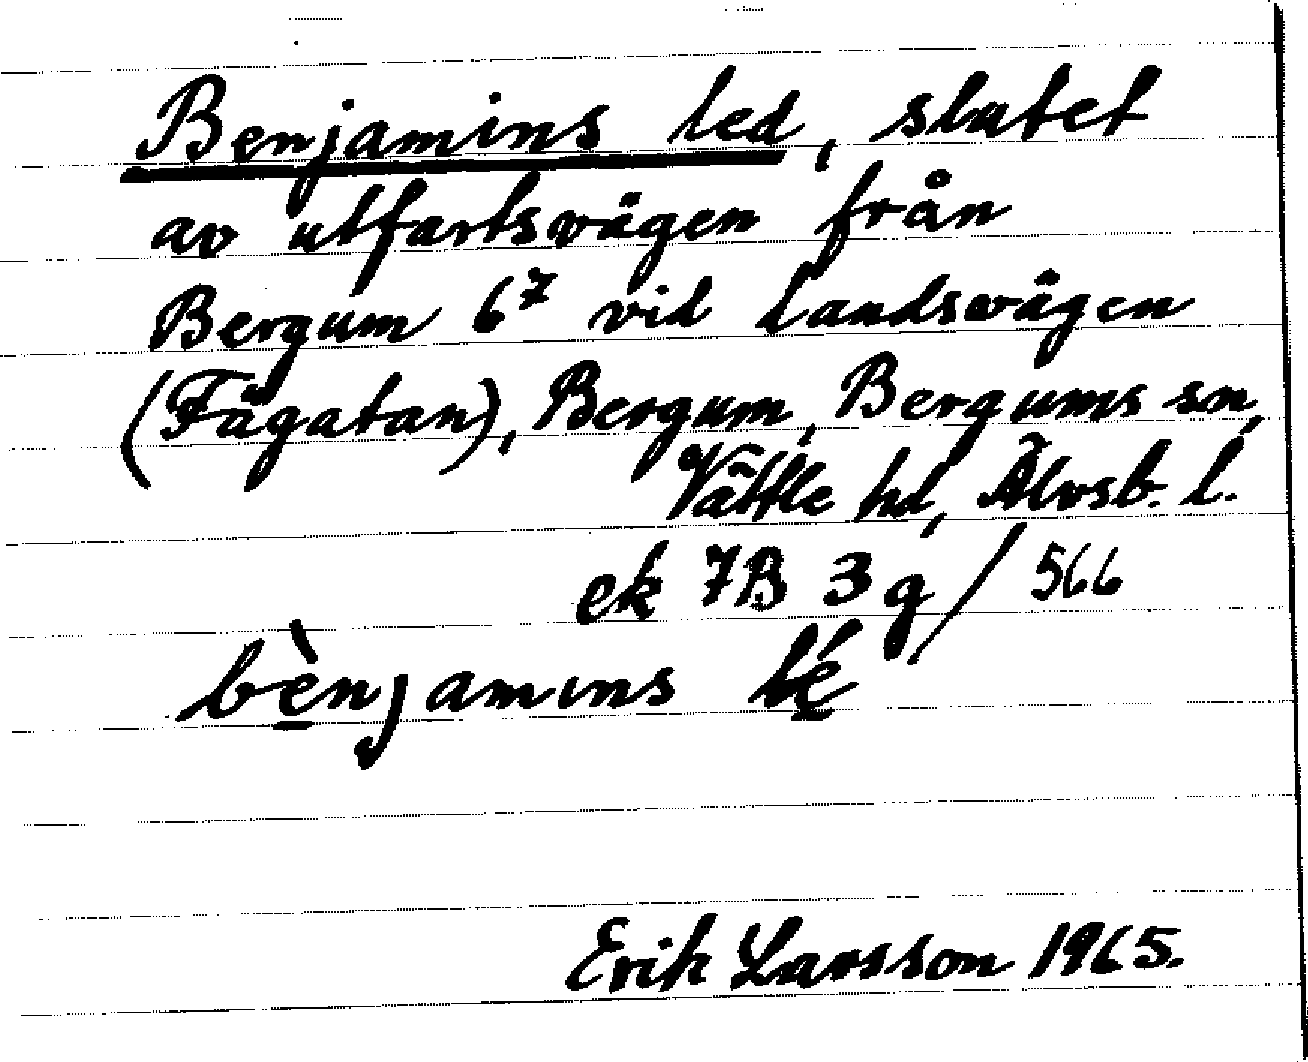 Benjamins led, slutet
av utfartsvägen från
Bergum 6⁷ vid landsvägen
(Fägatan), Bergum, Bergums sn,
Vättle hd, Älvsb. l.
ek 7B 3g / 566
bènjamıns lé
Erik Larsson 1965.